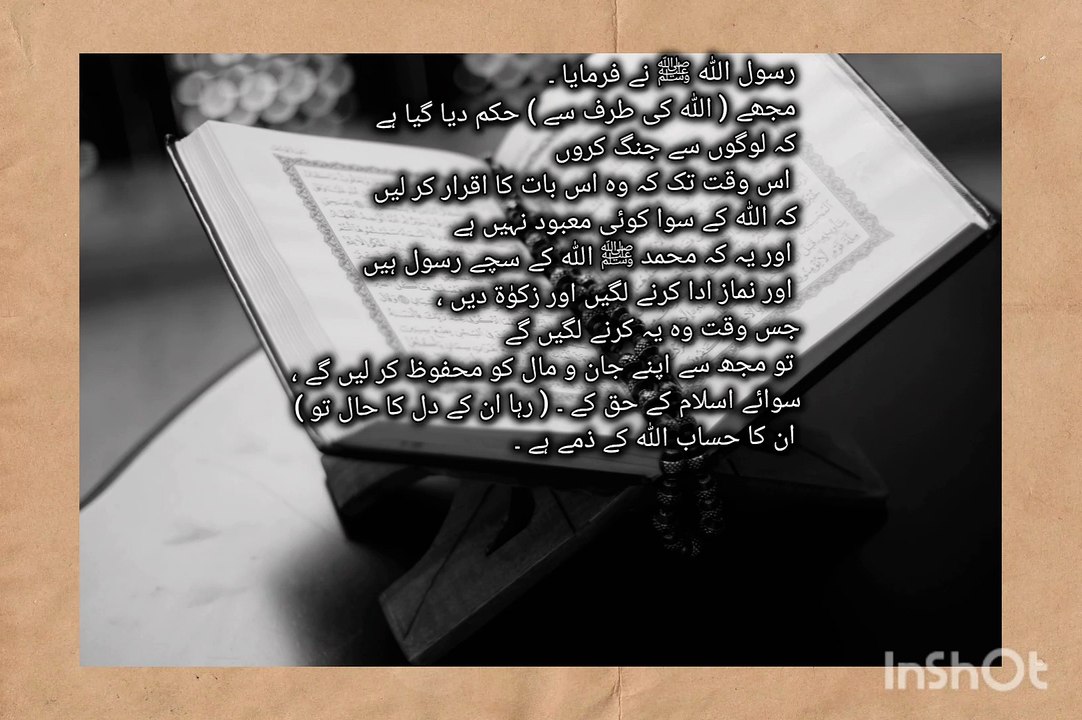 رسول اللہ ﷺ نے فرمایا ۔
مجھے ( اللہ کی طرف سے ) حکم دیا گیا ہے
کہ لوگوں سے جنگ کروں
اس وقت تک کہ وہ اس بات کا اقرار کر لیں
کہ اللہ کے سوا کوئی معبود نہیں ہے
اور یہ کہ محمد ﷺ اللہ کے سچے رسول ہیں
اور نماز ادا کرنے لگیں اور زکوٰۃ دیں ،
جس وقت وہ یہ کرنے لگیں گے
تو مجھ سے اپنے جان و مال کو محفوظ کر لیں گے ،
سوائے اسلام کے حق کے ۔ ( رہا ان کے دل کا حال تو )
ان کا حساب اللہ کے ذمے ہے ۔
InShOt